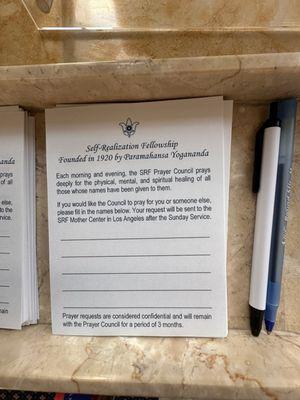 Self-Realization Fellowship
Founded in 1920 by Paramahansa Yogananda
Each morning and evening, the SRF Prayer Council prays
deeply for the physical, mental, and spiritual healing of all
those whose names have been given to them.
If you would like the Council to pray for you or someone else,
please fill in the names below. Your request will be sent to the
SRF Mother Center in Los Angeles after the Sunday Service.
Prayer requests are considered confidential and will remain
with the Prayer Council for a period of 3 months.
nanda
prays
of all
else,
to the
ice.
main